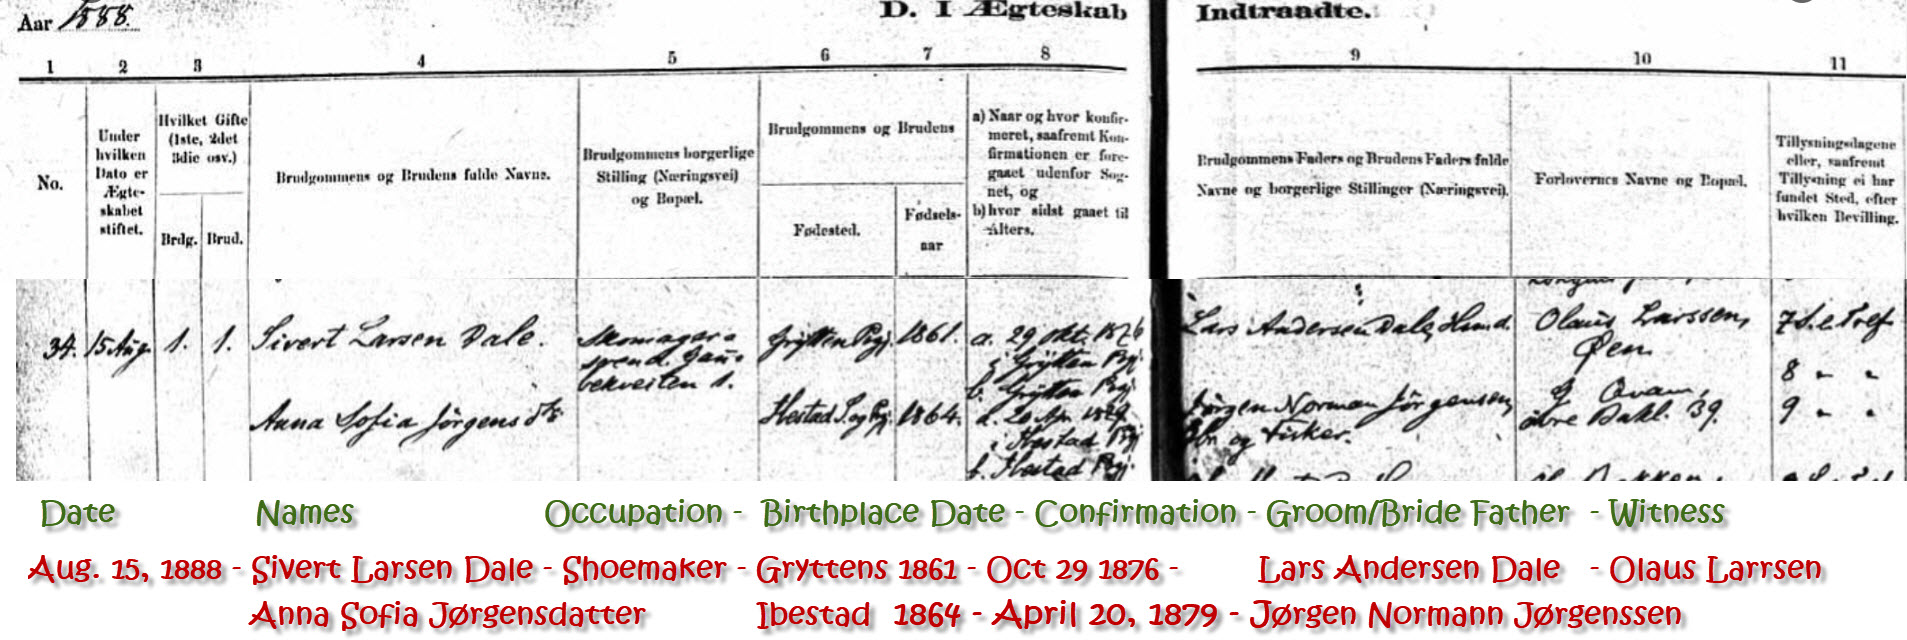 Aar 1888.
D. I Ægteskab Indtraadte.
1 2 3 4 5 6 7 8 9 10 11
No.
Under
hvilken
Dato er
Ægte-
skabet
stiftet.
Hvilket Gifte
(1ste, 2det
3die osv.)
Brdg. Brud.
Brudgommens og Brudens fulde Navne.
Brudgommens borgerlige
Stilling (Næringsvei)
og Bopæl.
Brudgommens og Brudens
Fødested.
Fødsels-
aar
a) Naar og hvor konfir-
meret, saafremt Kon-
firmationen er fore-
gaaet udenfor Sog-
net, og
b) hvor sidst gaaet til
Alters.
Brudgommens Faders og Brudens Faders fulde
Navne og borgerlige Stillinger (Næringsvei).
Forlovernes Navne og Bopæl.
Tillysningsdagene
eller, saafremt
Tillysning ei har
fundet Sted, efter
hvilken Bevilling.
34. 15 Aug. 1. 1. Sivert Larsen Dale.
Skomager
Grytten Pgj. 1861.
a. 29 Okt. 1876
i Grytten Pgj
b. Grytten Pgj
Lars Andersen Dale,
Olaus Larssen,
Øen
7 S. e. Tref
8 " "
9 " "
Anna Sofia Jørgensdtr
Ibestad S. og Pgj. 1864.
a. 20 Apr. 1879
i Ibestad Pgj
b. Ibestad Pgj.
Jørgen Norman Jørgensen,
og Fisker.
39.
Date Names Occupation - Birthplace Date - Confirmation - Groom/Bride Father - Witness
Aug. 15, 1888 - Sivert Larsen Dale - Shoemaker - Gryttens 1861 - Oct 29 1876 - Lars Andersen Dale - Olaus Larrsen
Anna Sofia Jørgensdatter Ibestad 1864 - April 20, 1879 - Jørgen Normann Jørgenssen